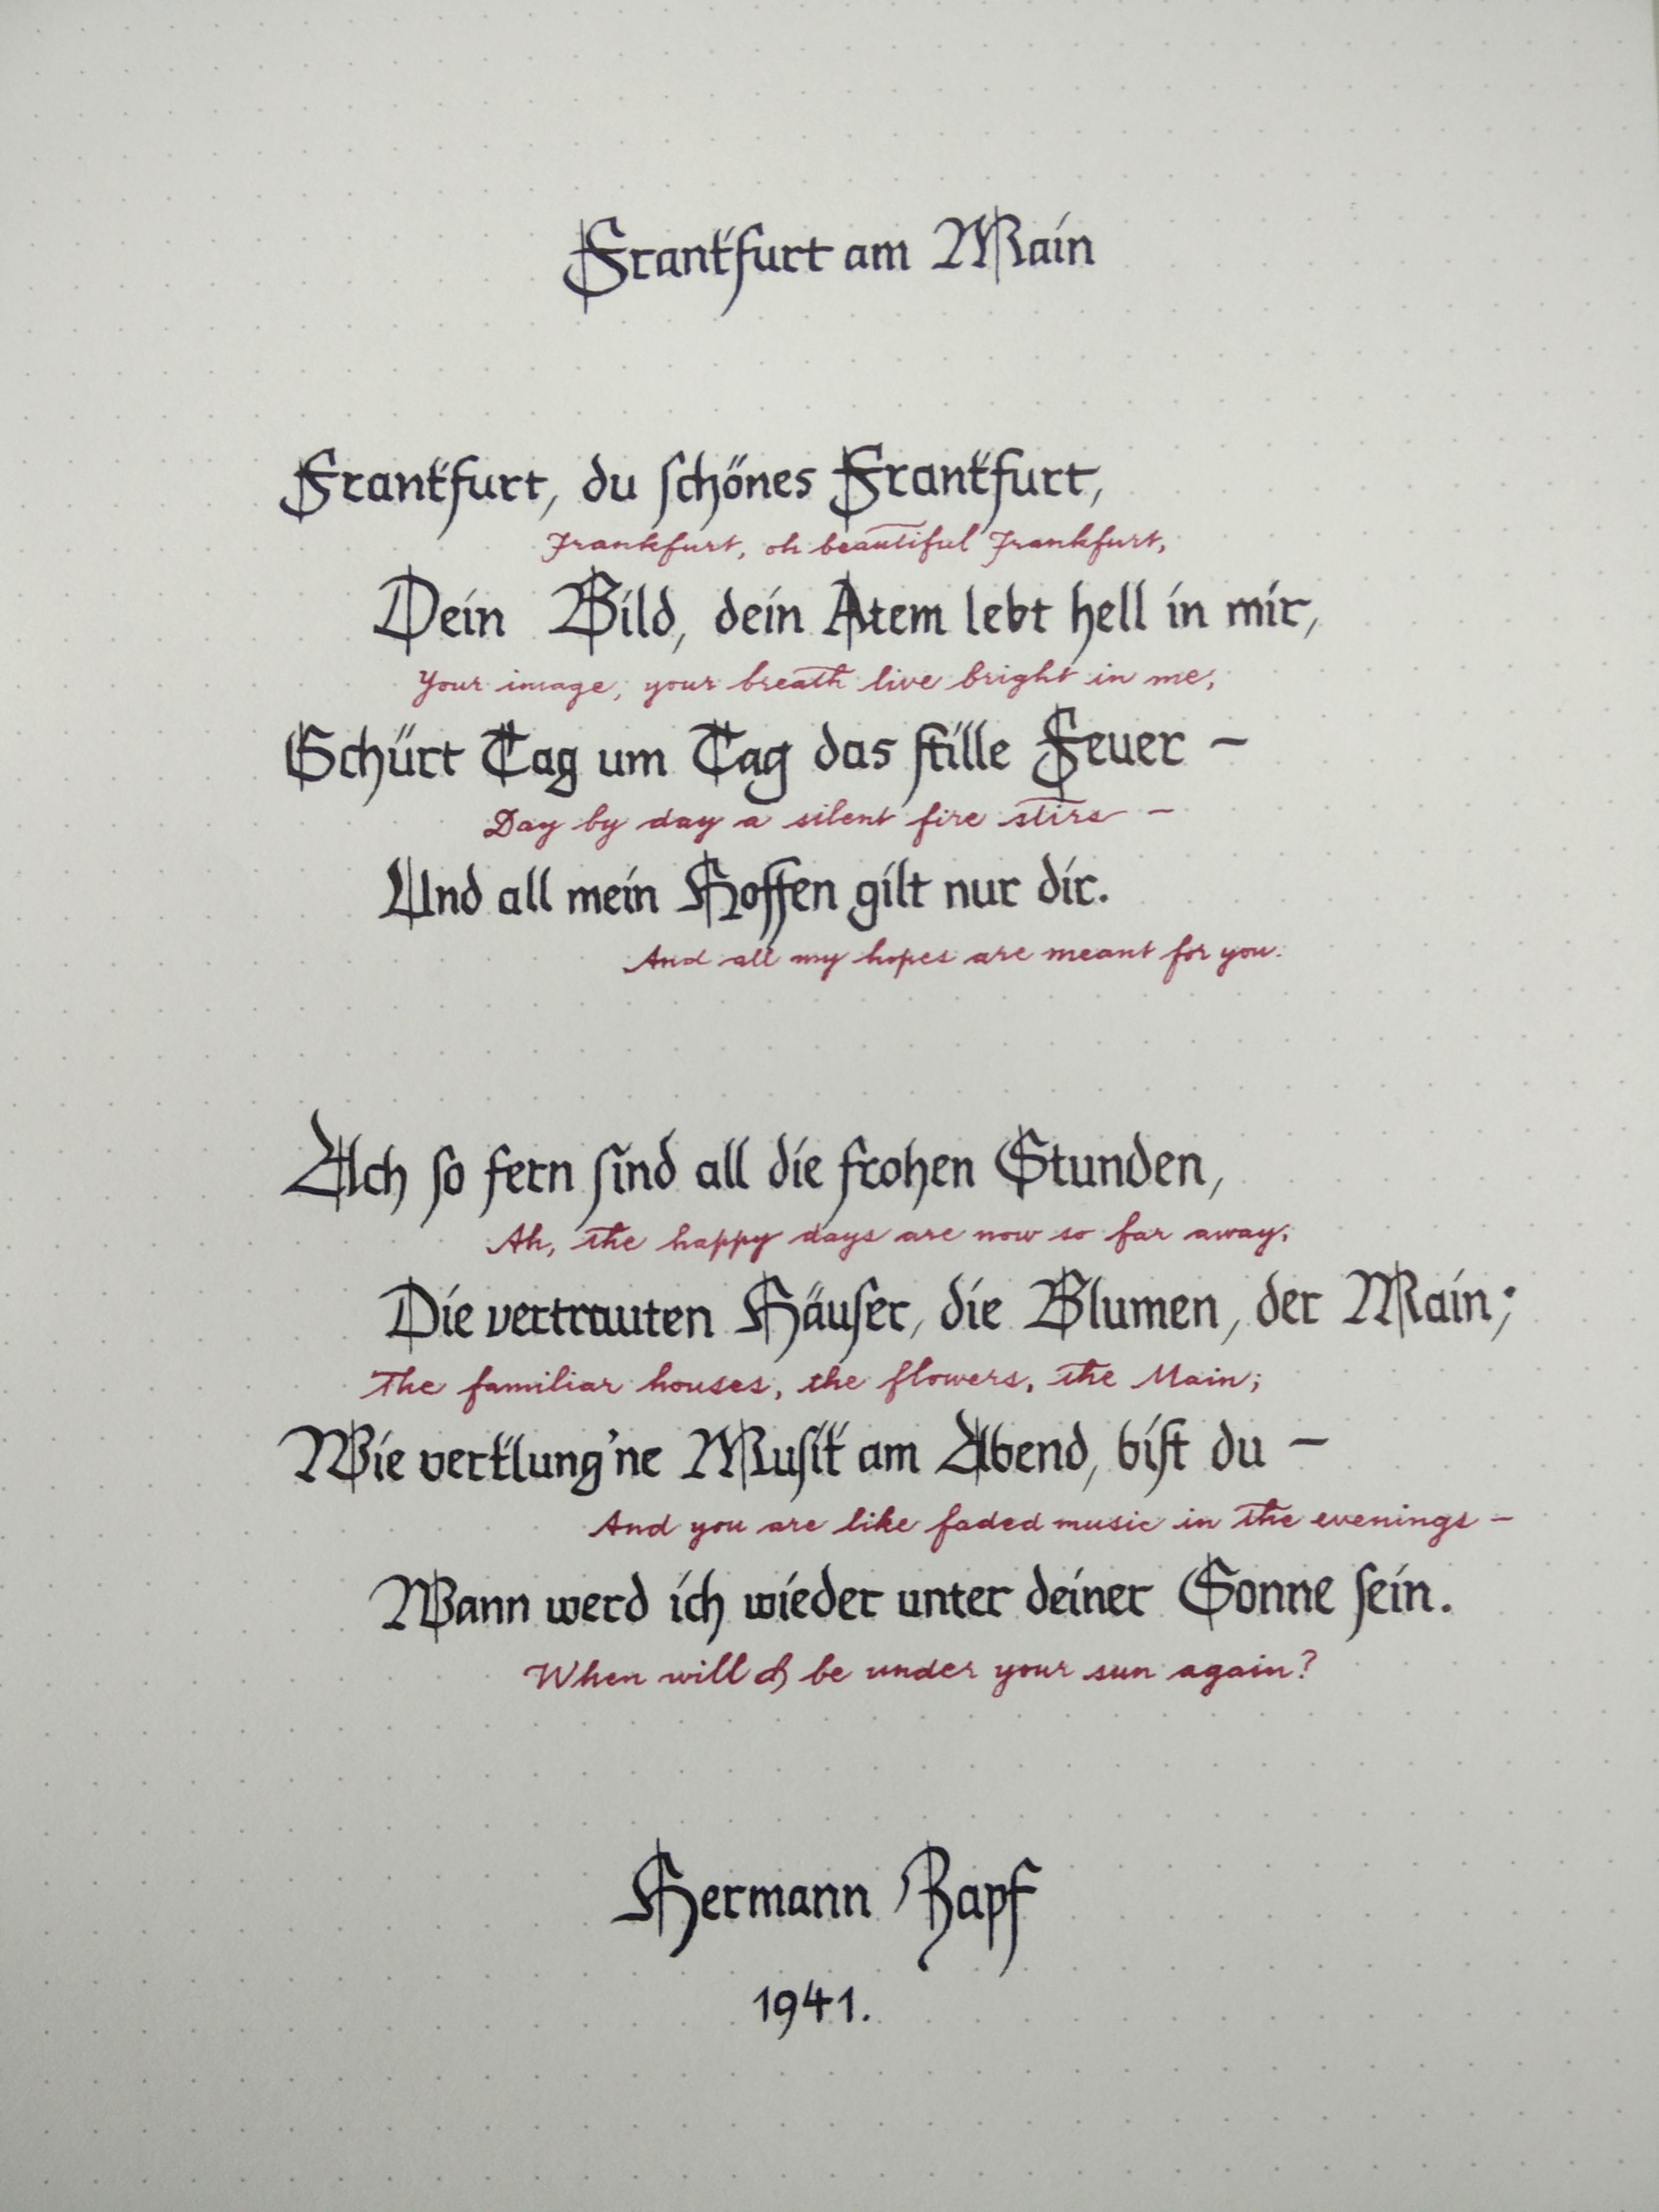 Frankfurt am Main
Frankfurt, du schönes Frankfurt,
Frankfurt, oh beautiful Frankfurt,
Dein Bild, dein Atem lebt hell in mir,
Your image, your breath live bright in me;
Schürt Tag um Tag das stille Feuer –
Day by day a silent fire stirs –
Und all mein Hoffen gilt nur dir.
And all my hopes are meant for you.
Ach so fern sind all die frohen Stunden,
Ah, the happy days are now so far away;
Die vertrauten Häuser, die Blumen, der Main;
The familiar houses, the flowers, the Main;
Wie verklung'ne Musik am Abend, bist du –
And you are like faded music in the evenings –
Wann werd ich wieder unter deiner Sonne sein.
When will I be under your sun again?
Hermann Zapf
1941.